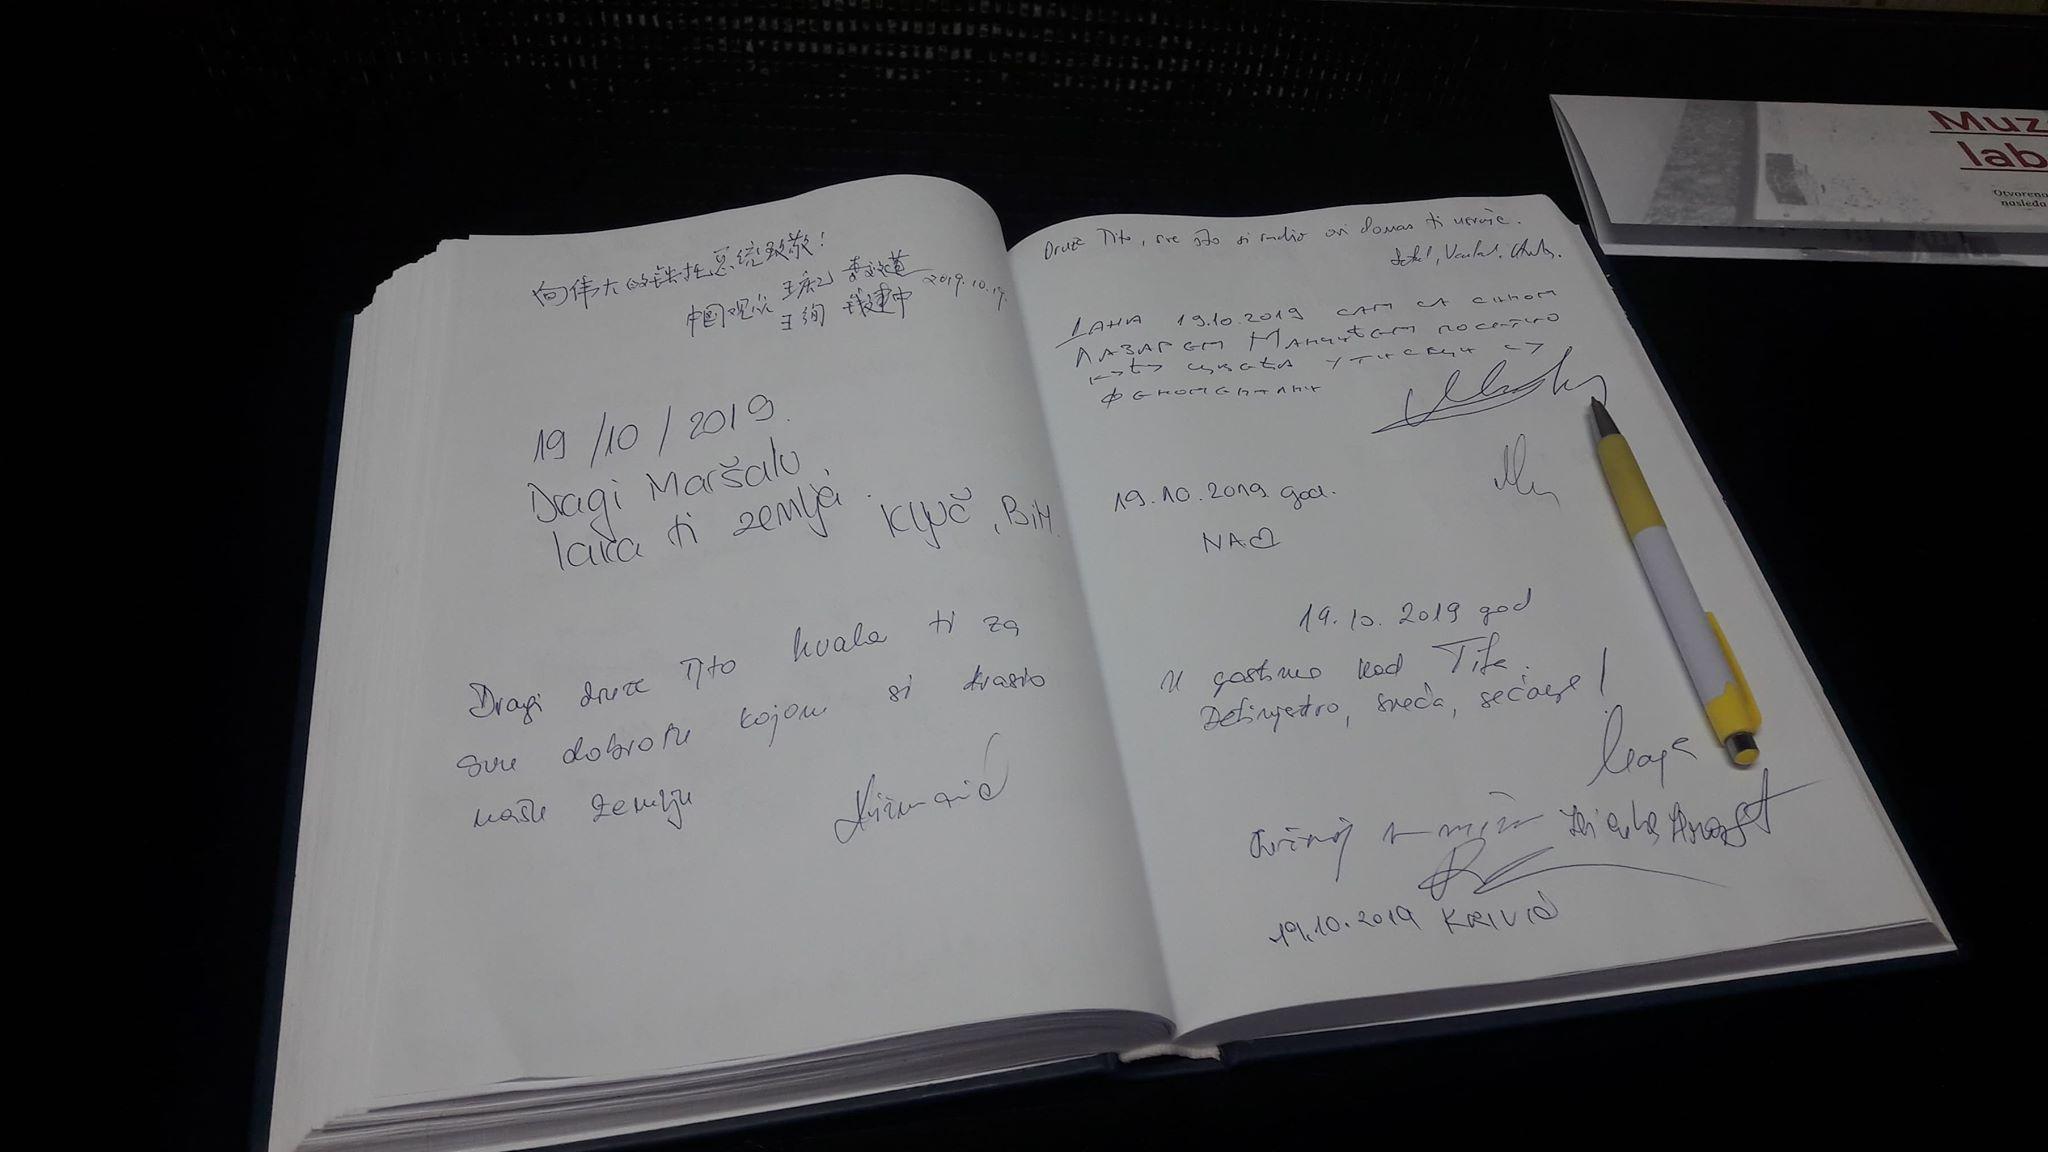 向伟大的铁托总统致敬!
中国观众 王庆 2019.10.19.
王绚 钱建中
19/10/2019.
Dragi Maršalu
laka ti zemlja, Ključ, BiH.
Dragi druze Tito hvala ti za
svu dobrotu kojom si krasio
našu zemlju
Druže Tito, sve što si radio ovi danas ti ruše.
ДАНА 19.10.2019 САМ СА СИНОМ
ЛАЗАРЕМ посетио
КУЋУ ЦВЕЋА УТИСЦИ СУ
ФЕНОМЕНАЛНИ
19.10.2019 god.
19.10.2019 god
U gostima kod Tita.
Detinjstvo, sreća, sećanje!
Maja
19.10.2019 KRIVIĆ
Muz
lab
Otvoreno
nasleđa